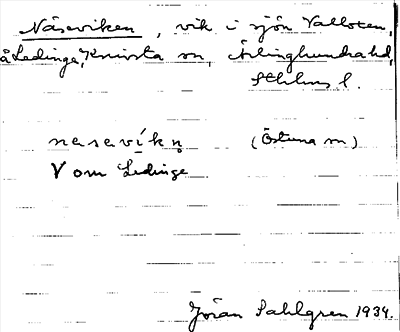 Näseviken, vik i sjön Valloxen,
å Ledinge, Knivsta sn, Ärlinghundra hd,
Sthlms l.
nɑsɘvíkn̥ (Östuna sn)
V om Ledinge
Jöran Sahlgren 1934.